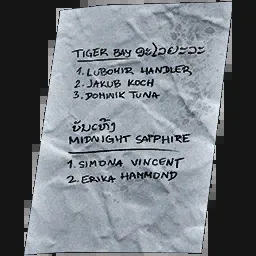 TIGER BAY
1. LUBOMIR HANDLER
2. JAKUB KOCH
3. DOMINIK TUNA
MIDNIGHT SAPPHIRE
1. SIMONA VINCENT
2. ERIKA HAMMOND